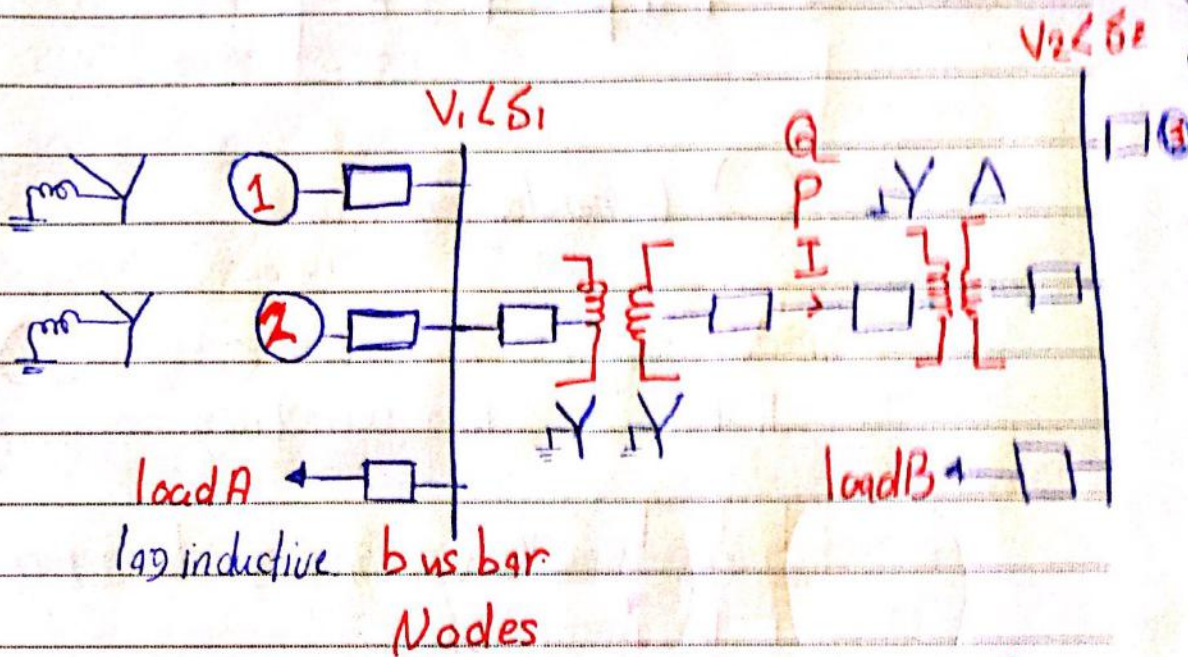 V2<δ2
V1<δ1
Q
P
I
Y Δ
1
3
2
Y Y
load A
load B
lag inductive bus bar
Nodes